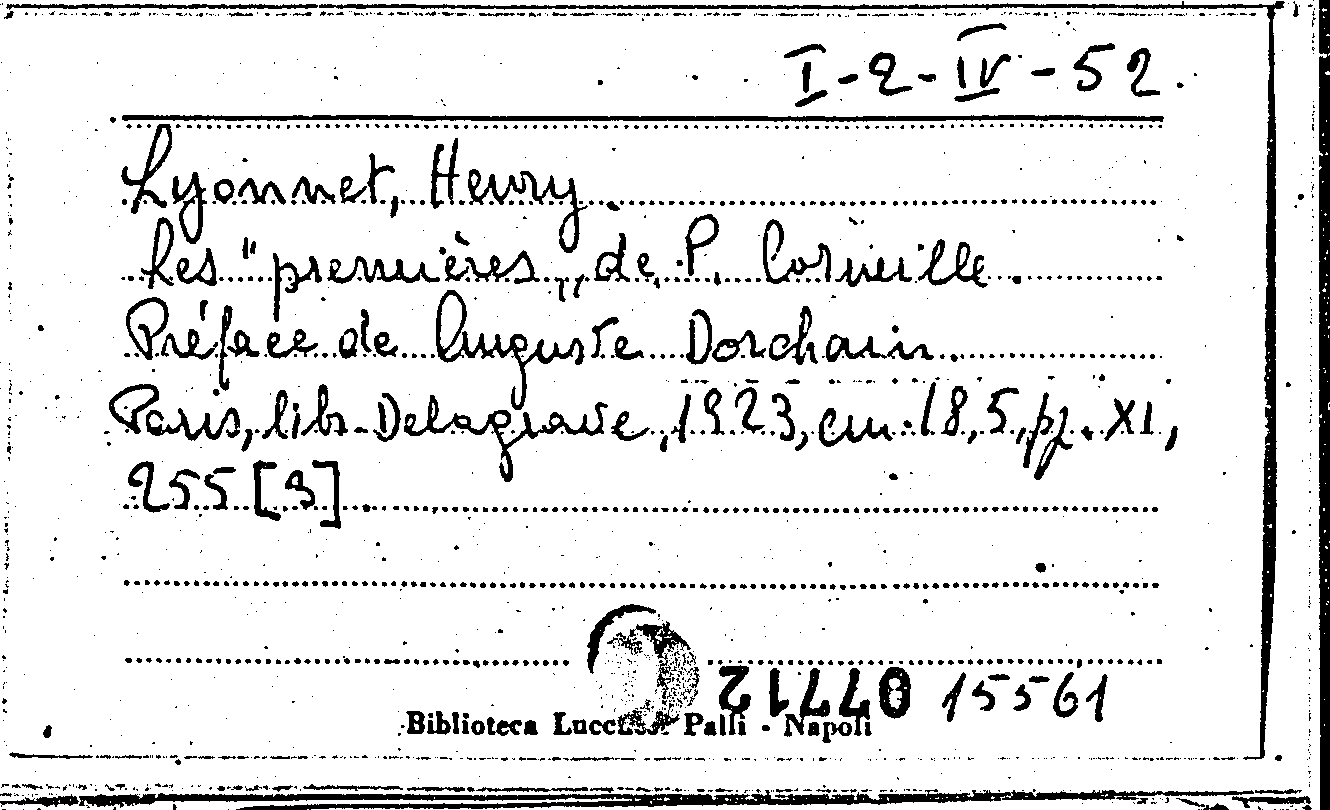 I-2-IV-52.
Lyonnet, Henry.
Les "premières„ de P. Corneille.
Préface de Auguste Dorchain.
Paris, lib. Delagrave, 1923, cm. 18,5, pp. XI,
255 [3].
07712 15561
Biblioteca Lucchesi Palli - Napoli